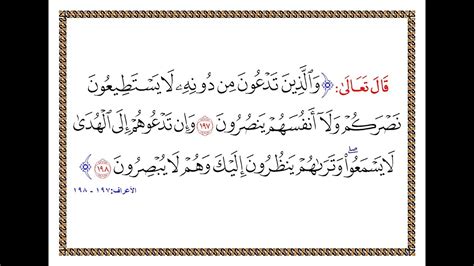 قَالَ تَعَالَىٰ: ﴿ وَٱلَّذِينَ تَدۡعُونَ مِن دُونِهِۦ لَا يَسۡتَطِيعُونَ
نَصۡرَكُمۡ وَلَآ أَنفُسَهُمۡ يَنصُرُونَ ١٩٧ وَإِن تَدۡعُوهُمۡ إِلَى ٱلۡهُدَىٰ
لَا يَسۡمَعُواْۖ وَتَرَىٰهُمۡ يَنظُرُونَ إِلَيۡكَ وَهُمۡ لَا يُبۡصِرُونَ ١٩٨ ﴾
الأعراف: ١٩٧ - ١٩٨